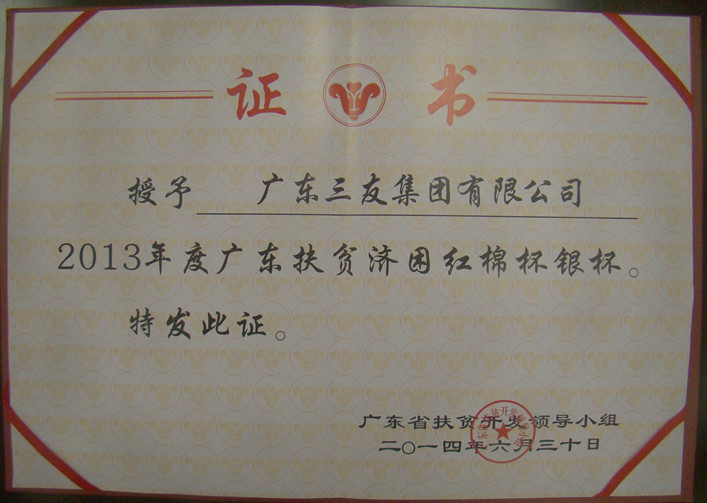 证书
授予 广东三友集团有限公司
2013年度广东扶贫济困红棉杯银杯。
特发此证。
广东省扶贫开发领导小组
二〇一四年六月三十日